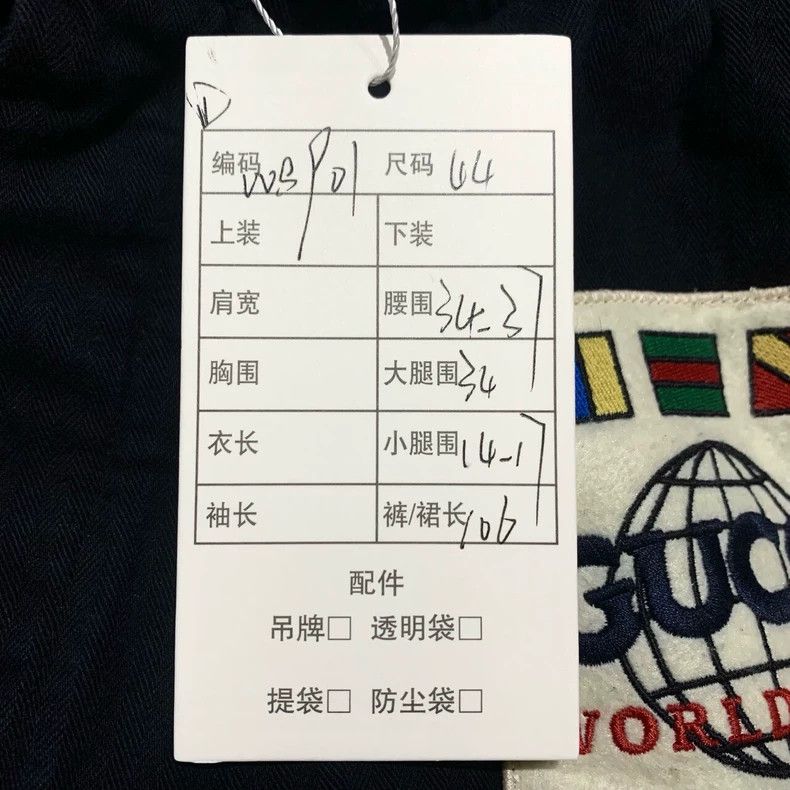 编码 尺码 44
上装 下装
肩宽 腰围 34-3
胸围 大腿围 34
衣长 小腿围 14-1
袖长 裤/裙长 106
配件
吊牌□ 透明袋□
提袋□ 防尘袋□
GUC
WORLD